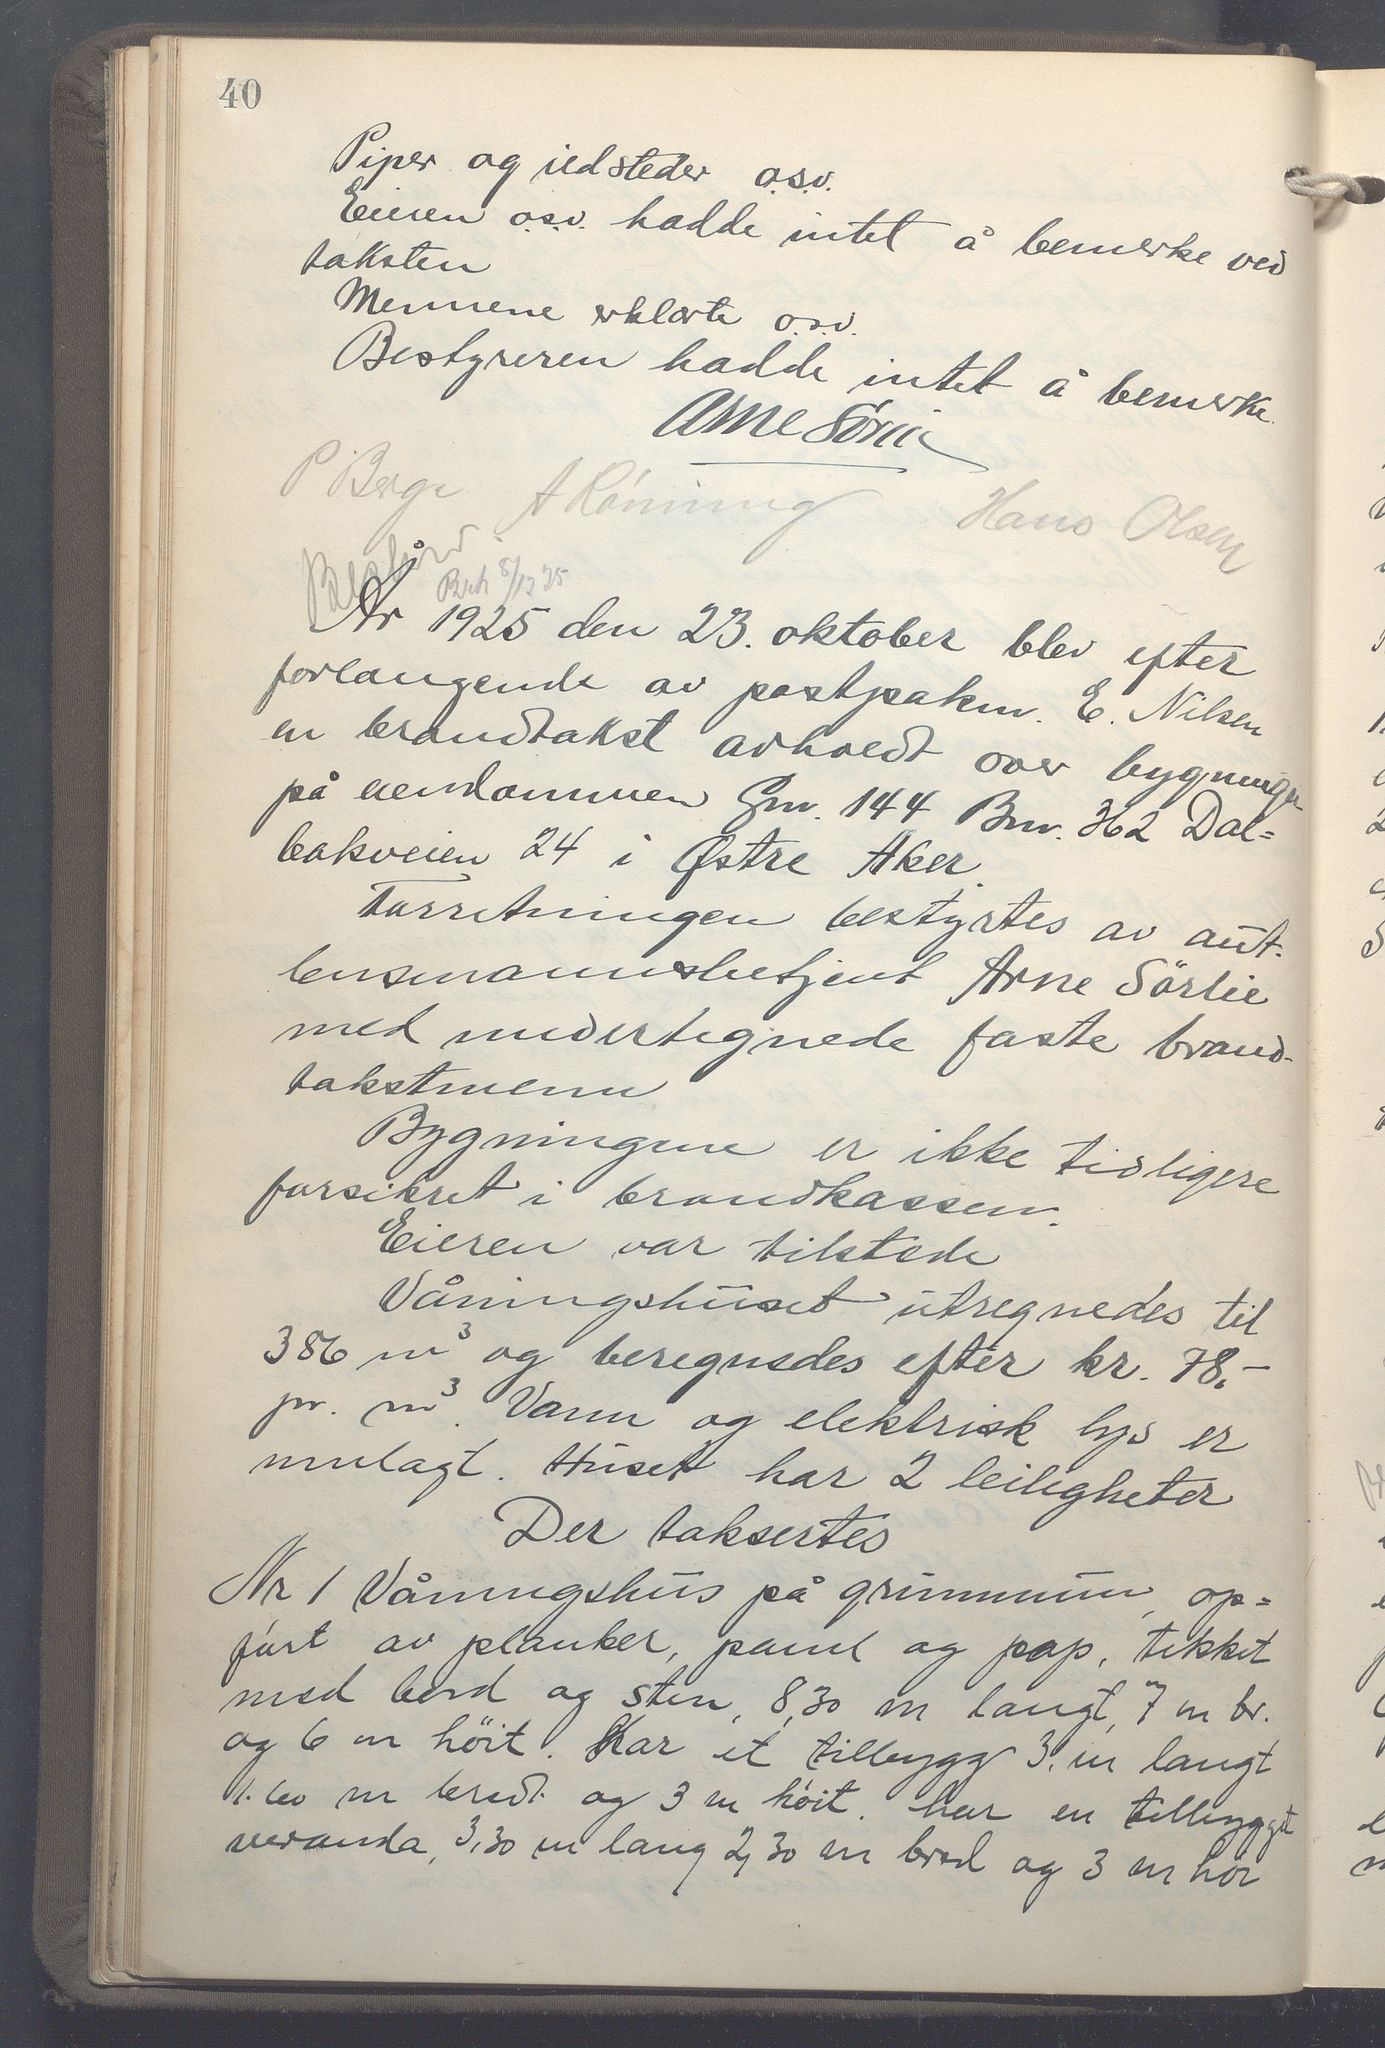 40
Piper og ildsteder o.s.v.
Eieren o.s.v. hadde intet å bemerke ved
taksten
Mennene erklærte o.s.v.
Bestyreren hadde intet å bemerke.
Arne Sörlie
P Berge A Rönning Hans Olsen
8/12 25
År 1925 den 23. oktober blev efter
forlangende av postpakm. E. Nilsen
en brandtakst avholdt over bygninger
på eiendommen Gnr. 144 Bnr. 362 Dal=
bakveien 24 i Østre Aker.
Forretningen bestyrtes av aut.
lensmannsbetjent Arne Sörlie
med undertegnede faste brand-
takstmenn
Bygningene er ikke tidligere
forsikret i brandkassen.
Eieren var tilstede
Våningshuset utregnedes til
386 m³ og beregnedes efter kr. 78,-
pr. m³. Vann og elektrisk lys er
innlagt. Huset har 2 leiligheter
Der taksertes
Nr 1 Våningshus på grunnmur, op=
fört av planker, panel og pap, tekket
med bord og sten, 8,30 m langt, 7 m br.
og 6 m höit. Har et tilbygg 3. m langt
1.60 m bredt og 3 m höit. har en tilbygget
veranda, 3,30 m lang 2,30 m bred og 3 m höi